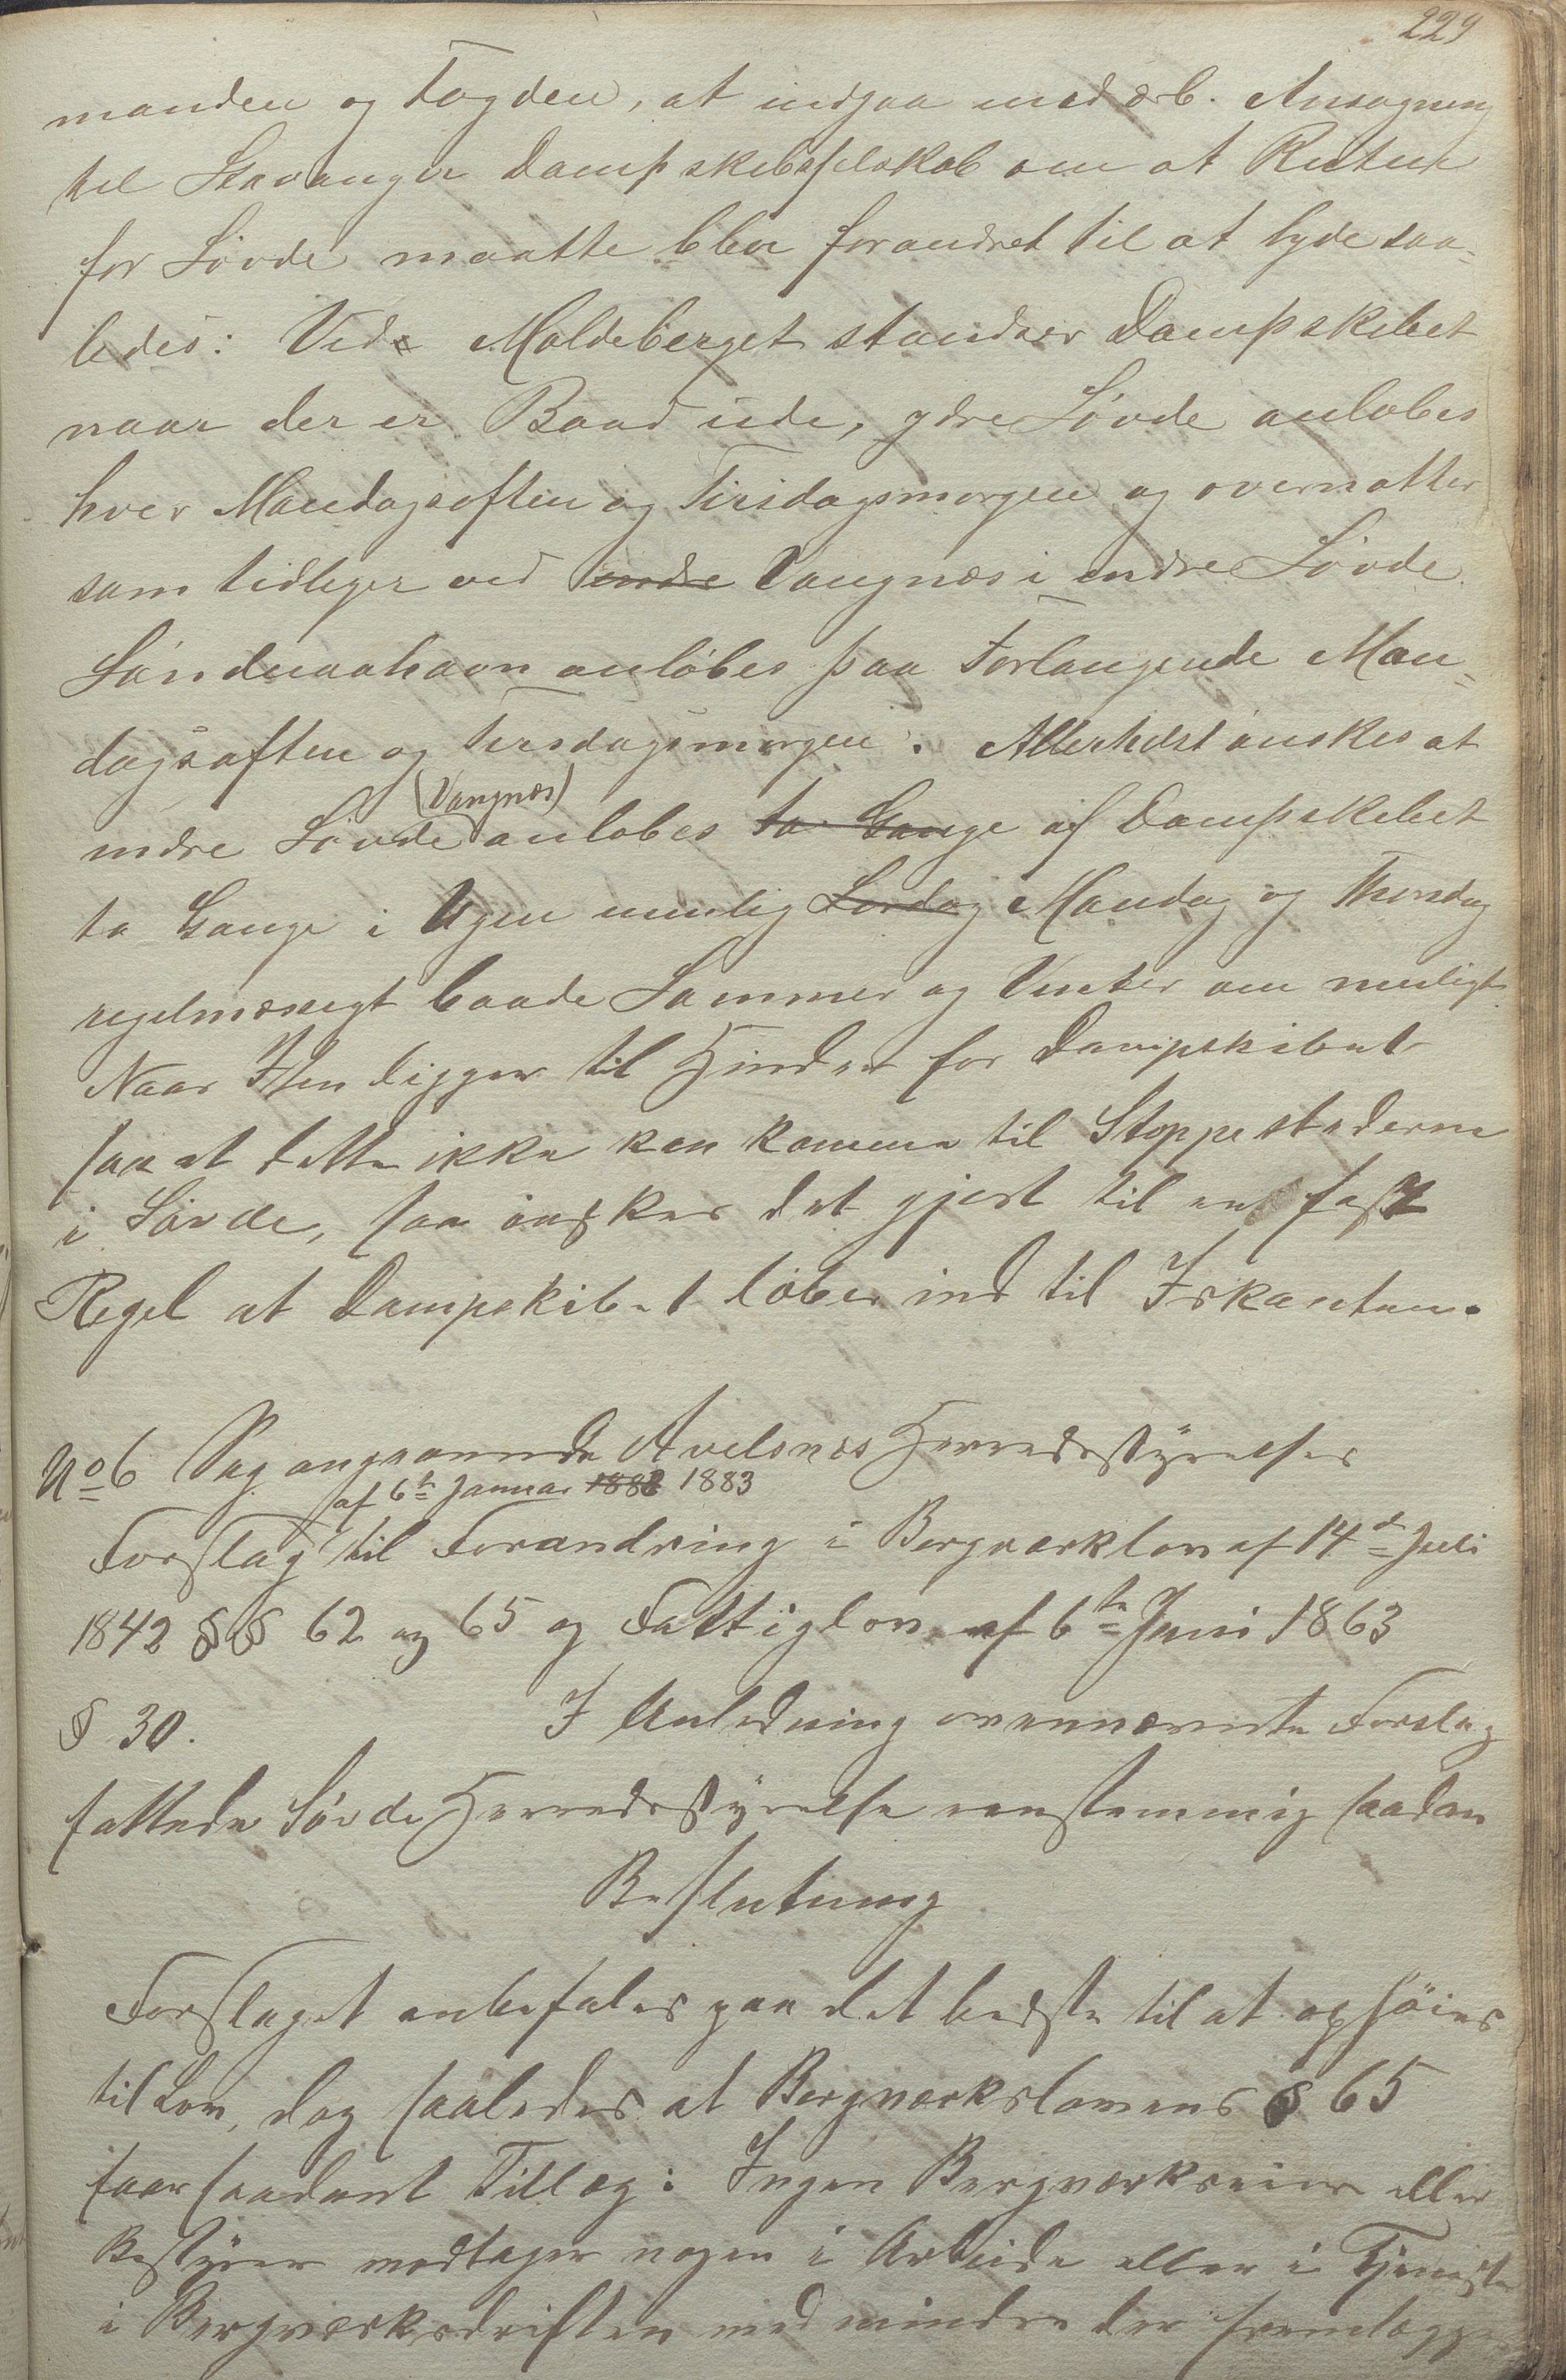 229
manden og Fogden, at indgaa med ærb. Ansøgning
til Stavanger Dampskibsselskab om at Ruten
for Søvde maatte blev forandret til at lyde saa=
ledes: Ved Moldeberget standser Dampskibet
naar der er Baad ude, ydre Søvde anløbes
hver Mandagsaften og Tirsdagsmorgen og overnatter
som tidliger ved indre Vangnæs i indre Søvde.
Søndenaahavn anløbes paa Forlangende Man=
dagsaften og Tirsdagsmorgen. Allerhelst ønskes at
(Vangnæs)
indre Søvde anløbes to Gange af Dampskibet
to Gange i Ugen nemlig Lørdag Mandag og Thorsdag
regelmæssigt baade Sommer og Vinter om muligt.
Naar Isen ligger til Hinder for Dampskibet
saa at dette ikke kan komme til Stoppestederne
i Søvde, saa ønskes det gjort til en fast
Regel at Dampskibet løber ind til Iskanten.
No 6 Sag angaaende Avelsnæs Herredsstyrelses
af 6te Januar 1882 1883
Forslag til Forandring i Bergværkslov af 14de Juli
1842 §§ 62 og 65 og Fattiglov af 6te Juni 1863
§ 30. I Anledning ovennævnte Forslag
fattede Søvde Herredsstyrelse eenstemmig saadan
Beslutning
Forslaget anbefales paa det bedste til at ophøies
til Lov, dog saaledes at Bergværkslovens § 65
faar saadant Tillæg: Ingen Bergværkseier eller
Bestyrer modtager nogen i Arbeide eller i Tjeneste
i Bergværksdriften med mindre der fremlægges